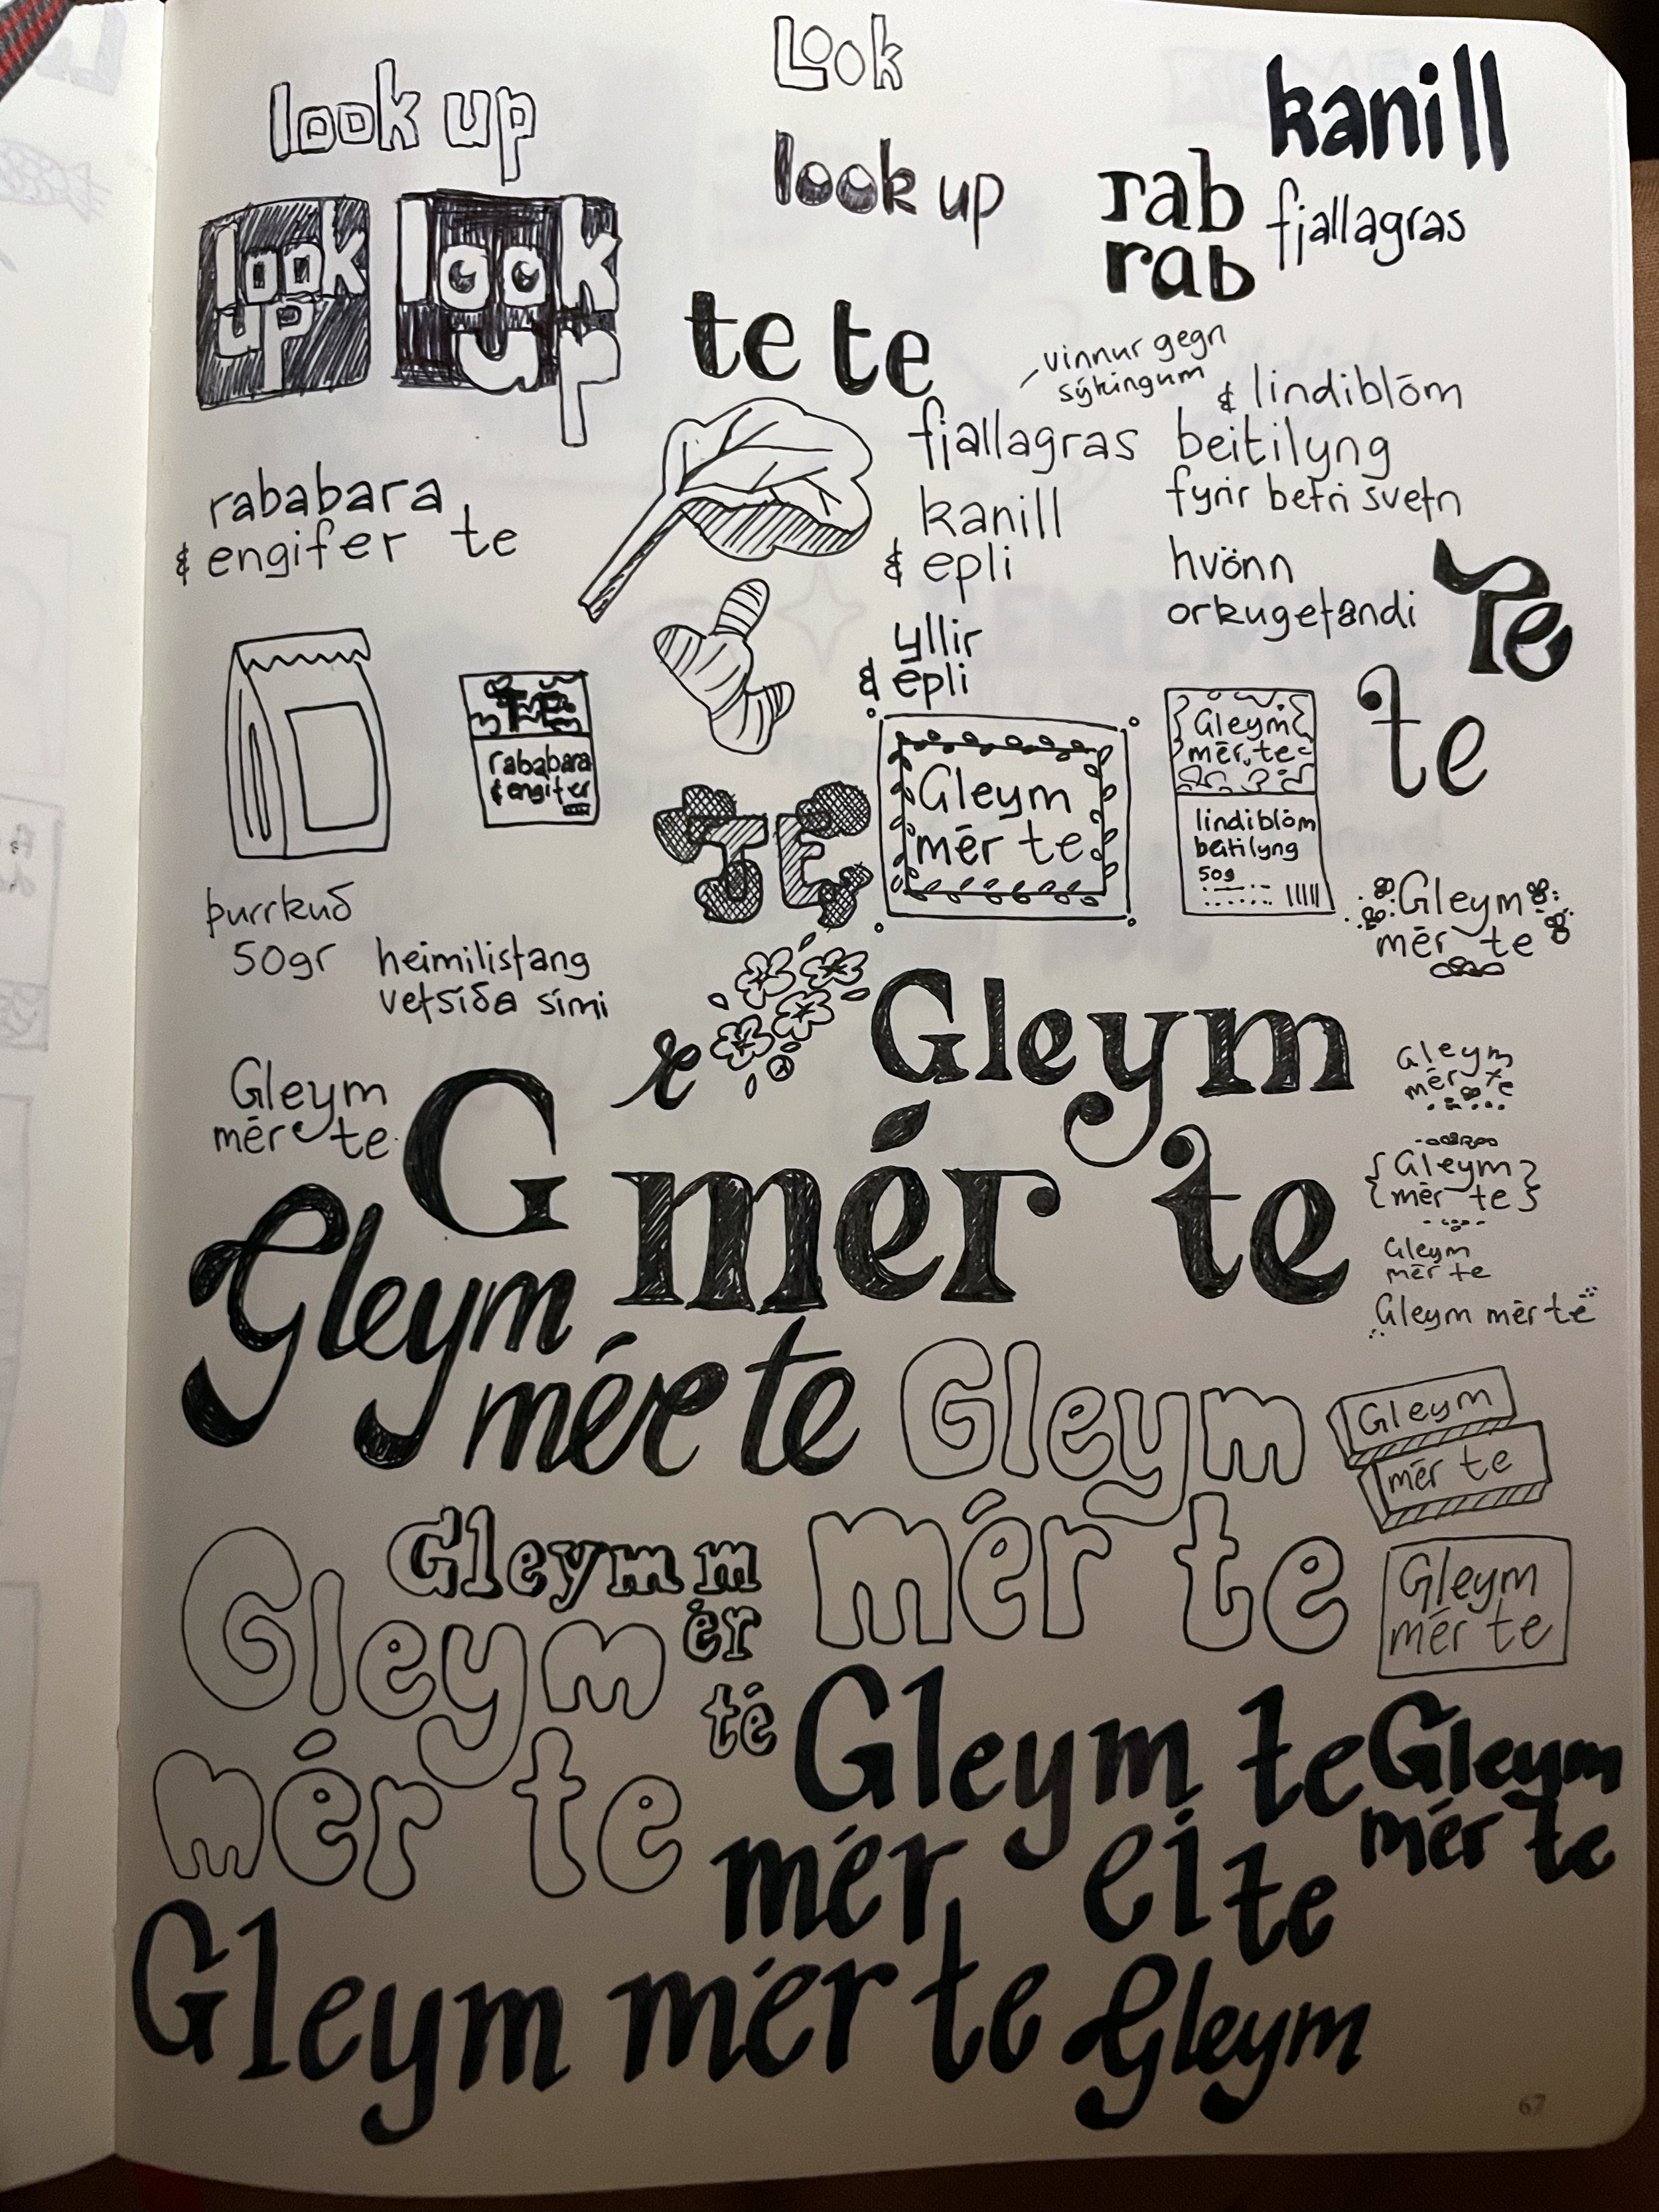 Look
look up
kanill
look up
rab
rab
fjallagras
look
up
look
up
te te
vinnur gegn
sýkingum
& lindiblóm
fjallagras
beitilyng
fyrir betri svefn
rababara
& engifer te
kanill
& epli
hvönn
orkugefandi
Te
yllir
& epli
te
TE
rababara
& engifer
Gleym
mér te
Gleym
mér te
lindiblóm
beitilyng
50g
TE
þurrkuð
50gr
heimilisfang
vefsíða sími
Gleym
mér te
Gleym
mér te
Gleym
mér te
G
Gleym
mér te
Gleym
mér te
Gleym
mér te
Gleym mér te
Gleym
mér te
Gleym
mér te
Gleym
mér te
Gleym m
ér
te
Gleym
mér te
Gleym
mér te
Gleym te
mér ei te
Gleym
mér te
Gleym mér te Gleym
67